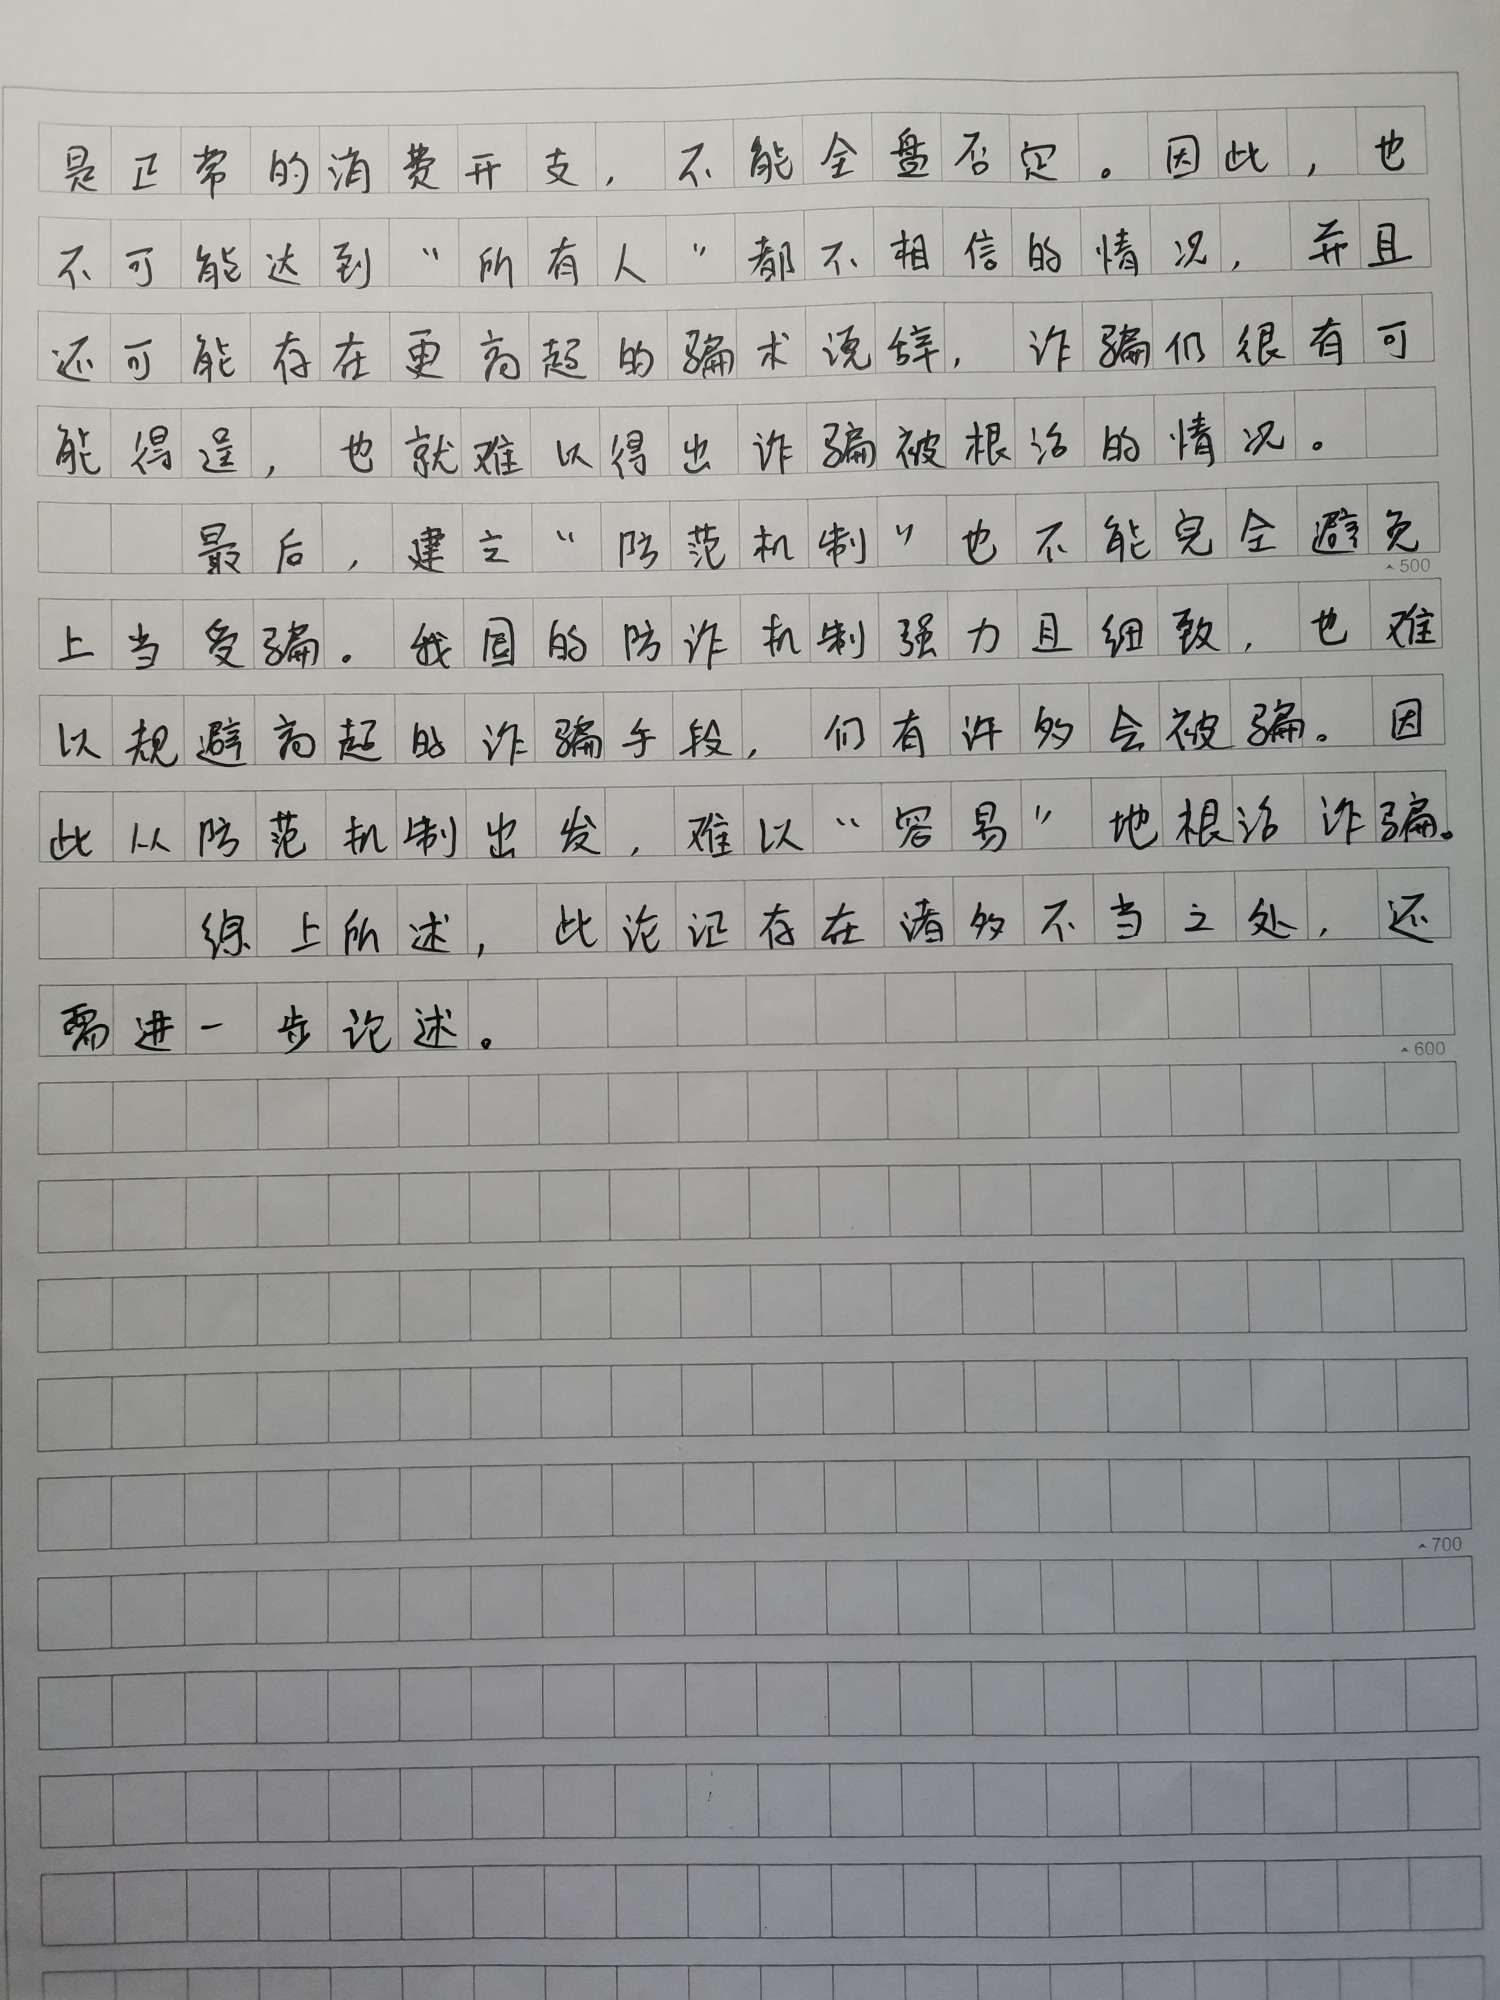 是正常的消费开支，不能全盘否定。因此，也
不可能达到“所有人”都不相信的情况，并且
还可能存在更高超的骗术说辞，诈骗们很有可
能得逞，也就难以得出诈骗被根治的情况。
最后，建立“防范机制”也不能完全避免
500
上当受骗。我国的防诈机制强力且细致，也难
以规避高超的诈骗手段，们有许多会被骗。因
此从防范机制出发，难以“容易”地根治诈骗。
综上所述，此论证存在诸多不当之处，还
需进一步论述。
600
700